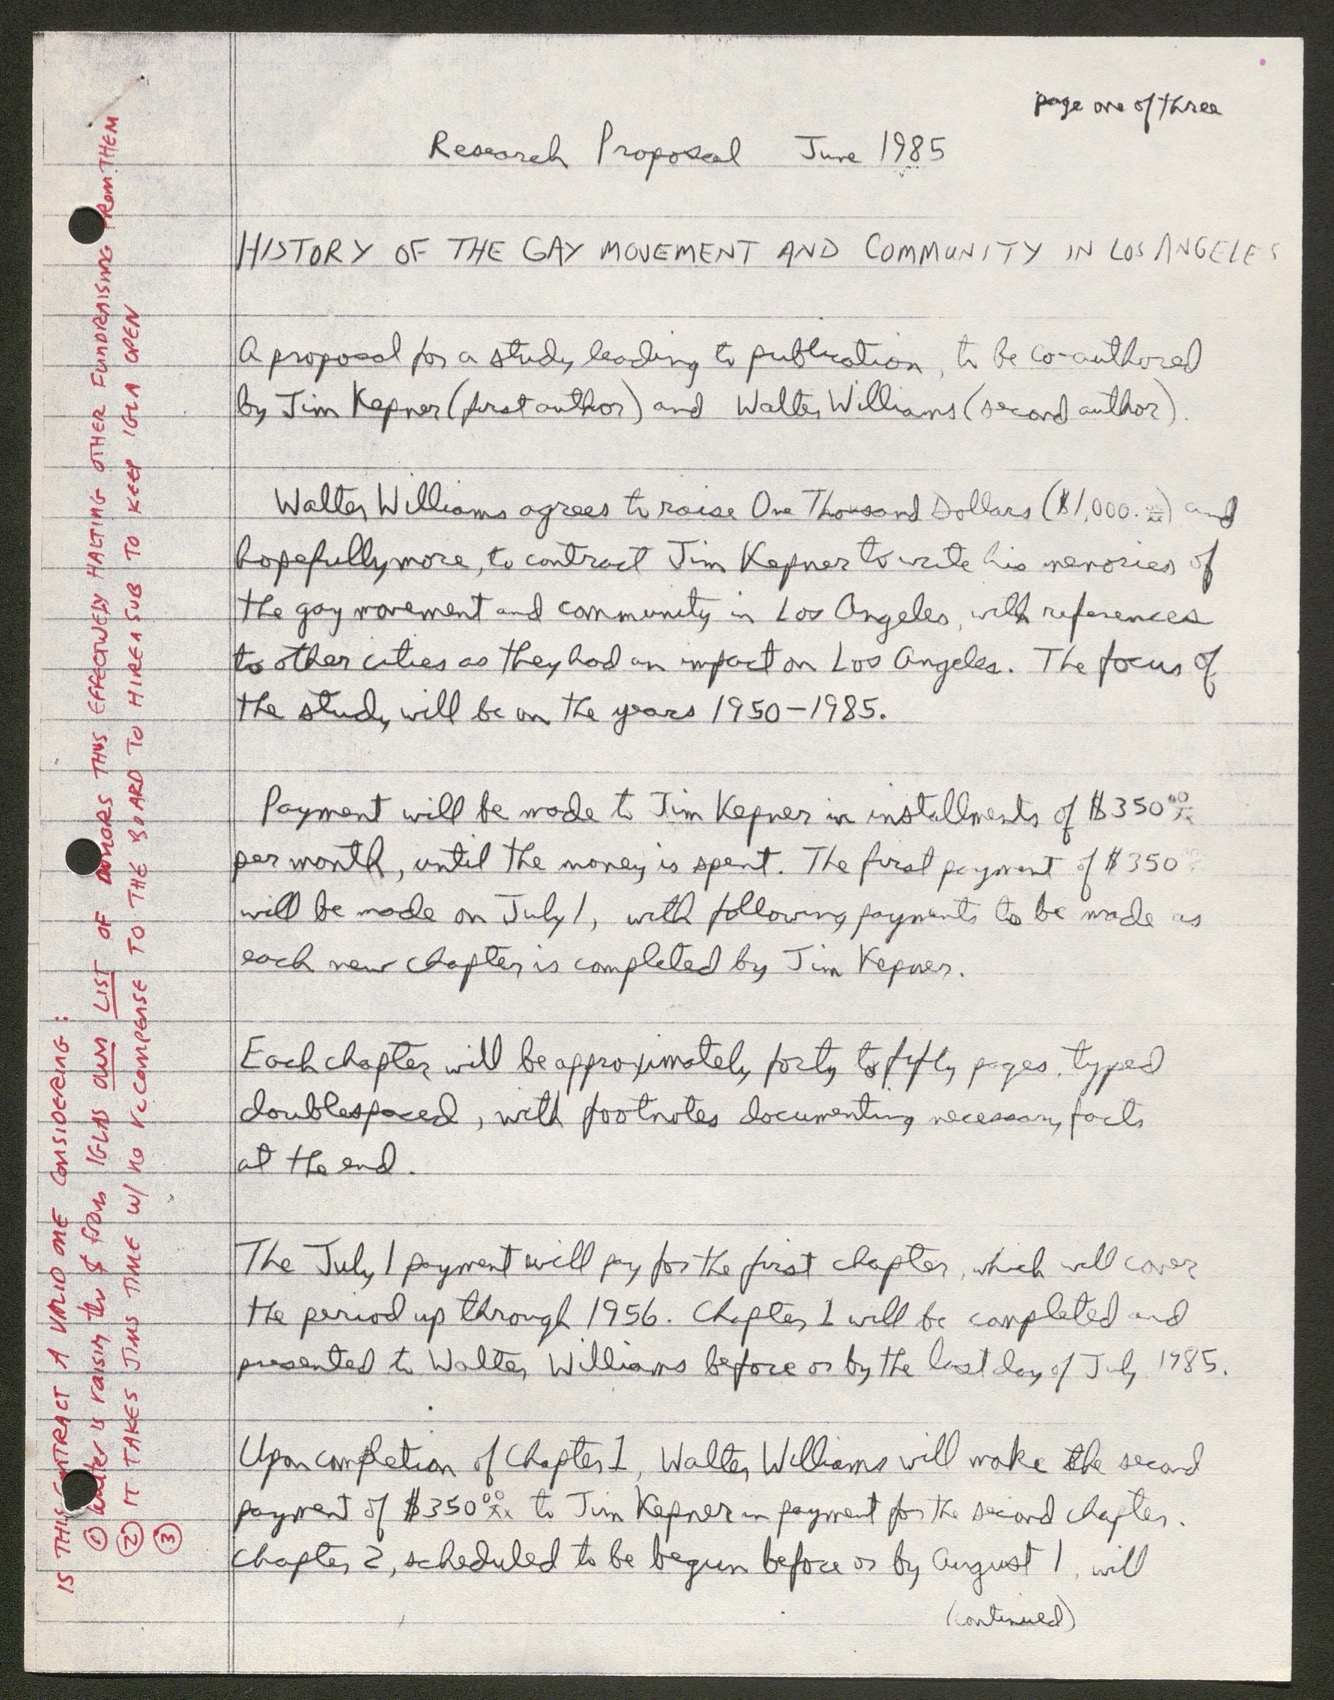 page one of three
Research Proposal June 1985
HISTORY OF THE GAY MOVEMENT AND COMMUNITY IN LOS ANGELES
A proposal for a study leading to publication, to be co-authored
by Jim Kepner (first author) and Walter Williams (second author).
Walter Williams agrees to raise One Thousand Dollars ($1,000.00/xx) and
hopefully more, to contract Jim Kepner to write his memories of
the gay movement and community in Los Angeles, with references
to other cities as they had an impact on Los Angeles. The focus of
the study will be on the years 1950-1985.
Payment will be made to Jim Kepner in installments of $350 00/xx
per month, until the money is spent. The first payment of $350
will be made on July 1, with following payments to be made as
each new chapter is completed by Jim Kepner.
Each chapter will be approximately forty to fifty pages, typed
doublespaced, with footnotes documenting necessary facts
at the end.
The July 1 payment will pay for the first chapter, which will cover
the period up through 1956. Chapter 1 will be completed and
presented to Walter Williams before or by the last day of July 1985.
Upon completion of Chapter 1, Walter Williams will make the second
payment of $350 00/xx to Jim Kepner in payment for the second chapter.
Chapter 2, scheduled to be begun before or by August 1, will
(continued)
IS THIS CONTRACT A VALID ONE CONSIDERING:
① Walter is raising the $ from IGLAS OWN LIST OF DONORS THUS EFFECTIVELY HALTING OTHER FUNDRAISING FROM THEM
② IT TAKES JIMS TIME W/ no RECOMPENSE TO THE BOARD TO HIRE A SUB TO KEEP IGLA OPEN
③